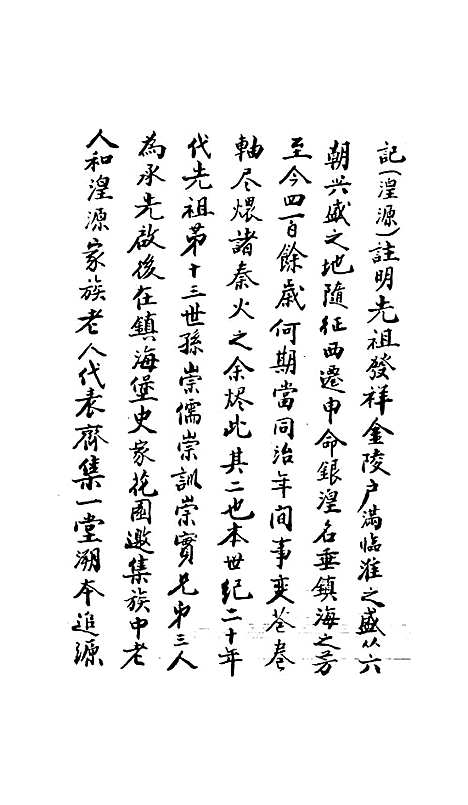 記（湟源）註明先祖發祥金陵户滿臨淮之盛从六
朝兴盛之地隨征西遷申命銀湟名垂鎮海之芳
至今四百餘歲何期當同治年间事变苍卷
軸尽煨諸秦火之余烬此其二也本世纪二十年
代先祖第十三世孫崇儒崇訓崇實兄弟三人
為承先啟後在鎮海堡史家花園邀集族中老
人和湟源家族老人代表齊集一堂溯本追源